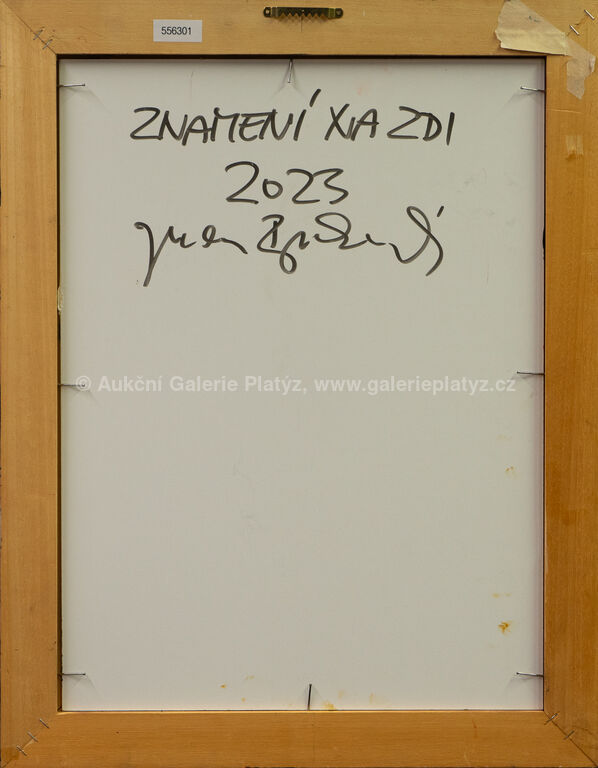 556301
ZNAMENÍ NA ZDI
2023
© Aukční Galerie Platýz, www.galerieplatyz.cz